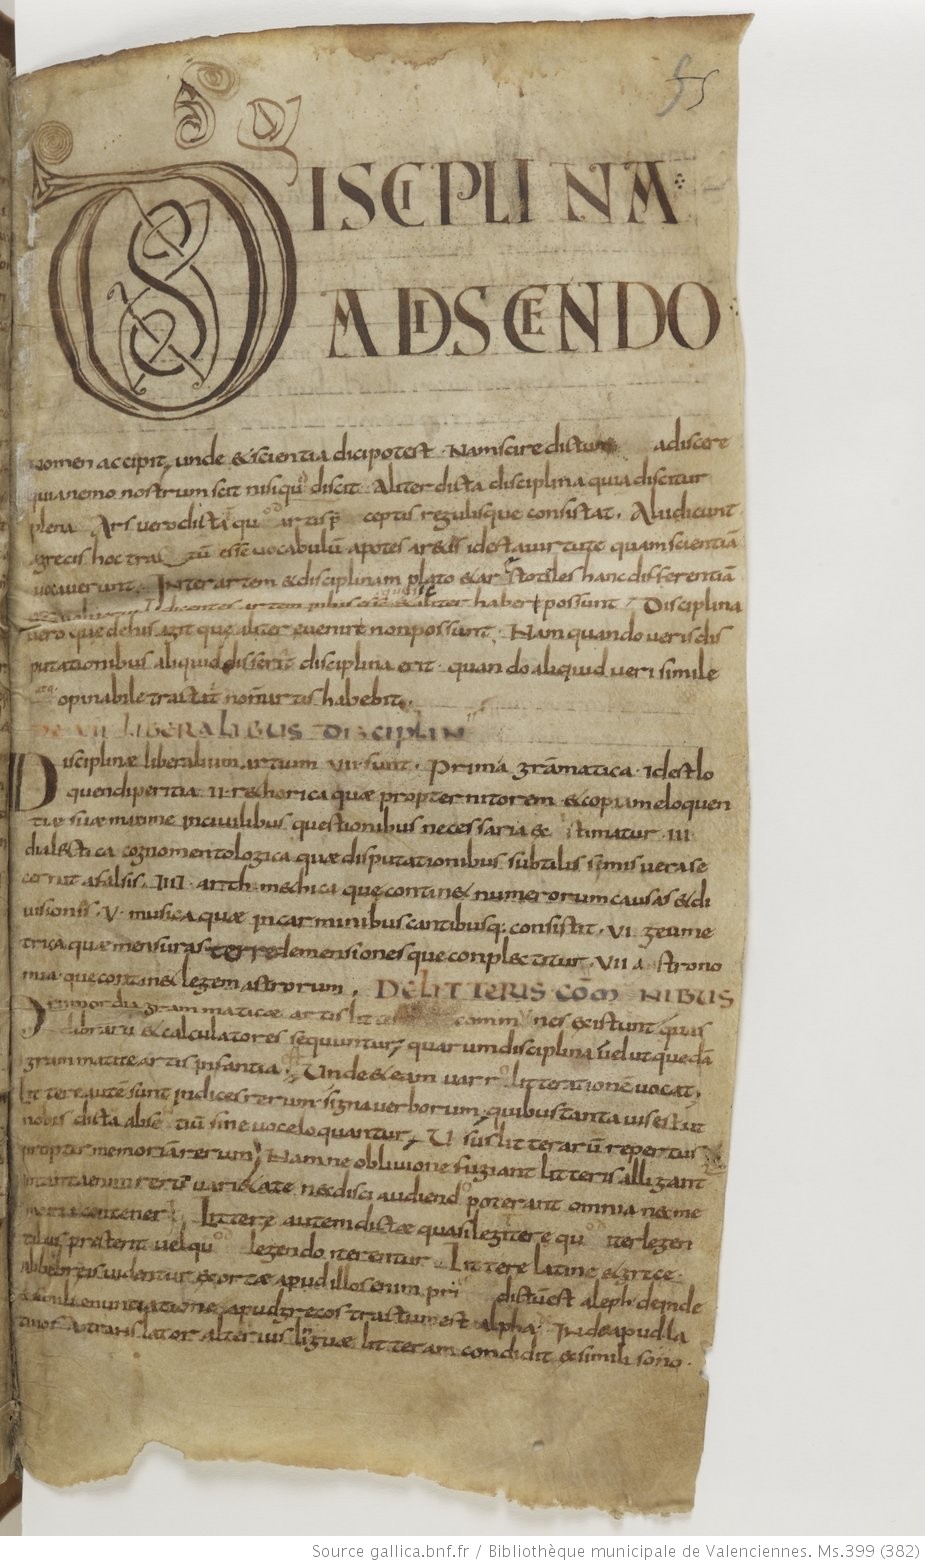 55
DISCIPLINA
ADISCENDO
nomen accipit, unde & scientia dici potest. Nam scire dictum adiscere
quia nemo nostrum scit nisi qui discit. Aliter dicta disciplina quia discitur
plena. Ars vero dicta quod artis p̄ceptis regulisque consistat. Alii dicunt
grecis hoc tractū esse vocabulū apotes ar&is id est a virtute quam scientiā
vocaverunt. Inter artem & disciplinam plato & aristotiles hanc differentiā
dicentes artem & aliter habere possunt. Disciplina
vero que de his agit que aliter evenire non possunt. Nam quando veris dis
putationibus aliquid disserit disciplina erit. quando aliquid veri simile
atq; opinabile tractat nom̄ artis habebit.
DE VII LIBERALIBUS DISCIPLIN
Disciplinæ liberalium artium VII sunt. Prima gram̄matica. Id est lo
quendi peritia. II r&horica quæ propter nitorem & copiam eloquen
tiæ suæ maxime in civilibus questionibus necessaria existimatur. III
dialectica cognomento logica quæ disputationibus subtilissimis vera se
cernit a falsis. IIII arithm&ica que contin& numerorum causas & di
visionis. V musica quæ in carminibus cantibusq; consistit. VI geome
trica quæ mensuras terre demensionesque conplectitur. VII astrono
mia que contin& legem astrorum. DE LITTERIS COMNIBUS
Primordia grammaticæ artis litteræ communes existunt quas
librarii & calculatores sequuntur, quarum disciplina velut quedā
grammatice artis infantia. Unde & eam varro litterationē vocat.
Littere autē sunt indices rerum signa verborum, quibus tanta vis est ut
nobis dicta absentiū sine voce loquantur. Usus litterarū repertus
propter memoriā rerum. Nam ne oblivione fugiant litteris alligant
in tanta enim rerū vari&ate nec disci audiendo poterant omnia nec me
moria contineri. Littere autem dictæ quasi legitere quod iter legen
tibus prestent vel quod legendo iterentur. Littere latine & grece
ab hebreis videntur exortæ apud illos enim prius dictū est aleph deinde
ex simili enuntiatione apud grecos tractum est alpha. Inde apud la
tinos A translator alterius linguæ litteram condidit & simili sono.
Source gallica.bnf.fr / Bibliothèque municipale de Valenciennes. Ms.399 (382)